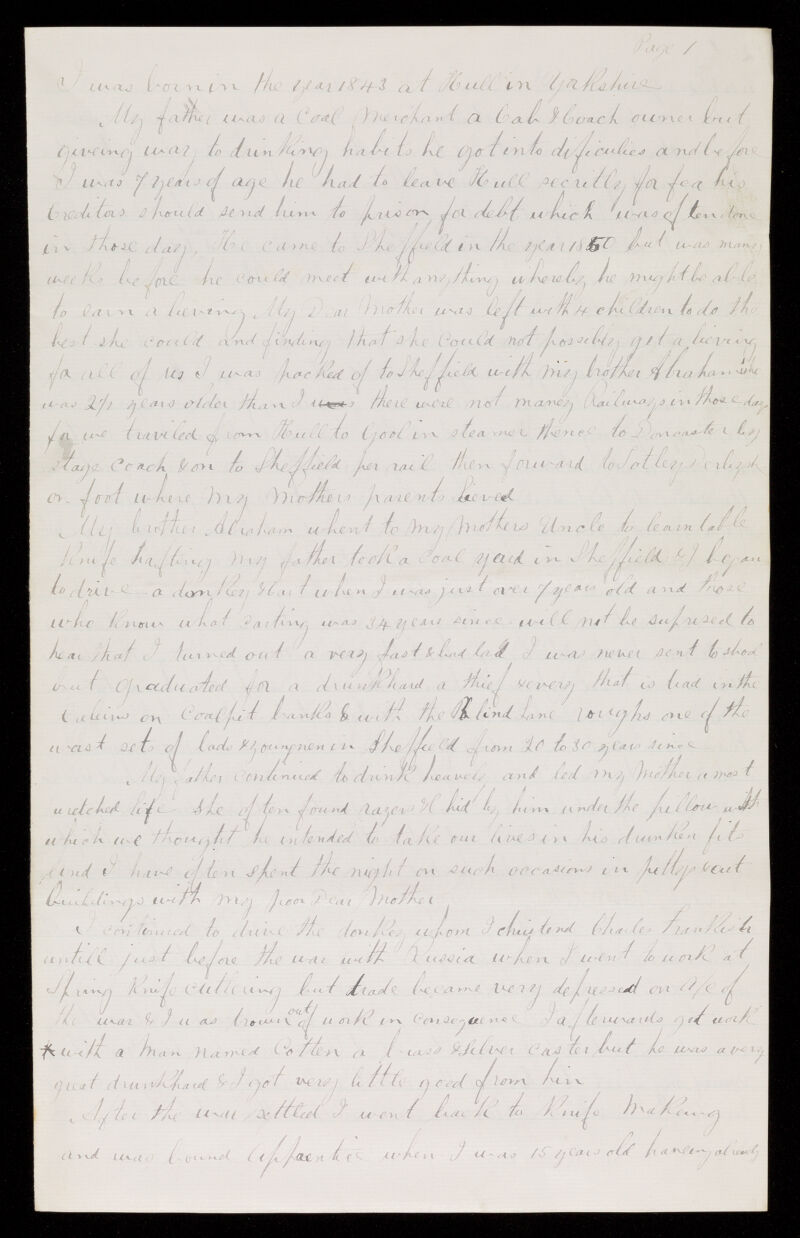 Page 1
I was born in the year 1843 at Hull in Yorkshire
My father was a Coal Merchant a Cab & Coach owner but
giveing way to drinking habits he got into dificulies and before
I was 7 years of age he had to leave Hull secritly for fear his
Creditors should send him to prison for debt which was often done
in those days. He came to Sheffield in the year 1850 but was maney
weeks before he could meet with anything whereby he might be able
to earn a lieving My Dear Mother was left with 4 children to do the
best she could and finding that she could not possibly get a lieving
for all of us I was packed of to Sheffield with my brother Abraham who
was 2½ years older than I was there were not maney Railways in those days
for we traviled from Hull to Gool in steamer thence to Doncaster by
stage coach & on to Sheffield per rail then forward to Totley Derbysh
on foot where my Mothers parents lieved
My brother Abraham whent to my Mothers Uncle to learn table
Knife hafting my father took a coal yard in Sheffield & I began
to drive a donkey & cart when I was just over 7 years old and those
who know what carting was 34 years since will not be suprised to
hear that I turned out a very fast & bad lad I was never sent to shool
but graduated for a drunkhard a thief & every that is bad in the
Cabins on Coalpit banks & with the Blind Lane roughs one of the
worst sets of lads & young men in Sheffield from 20 to 30 years since
My father continued to drink heavely and led my Mother a most
wretched life She often found razers &c hid by him under the pillow with
which we thought he intended to take our lives in his drunken fits
and I have often spent the night on such occasions in pettys & out
buildings with my poor Dear Mother
I continued to drive the donkey whom I christend Charles Frankish
untill just before the war with Russia when I went to work at
Spring Knife cutlering but trade became very depressed on a/c of
the war & I was trown out of work in consequence I afterwards got work
with a Man named Cotten a brass & silver caster but he was a very
great drunkhard & I got very little good from him
After the war settled I went back to Knife Makeing
and was bound Apprentice when I was 15 years old haveing already